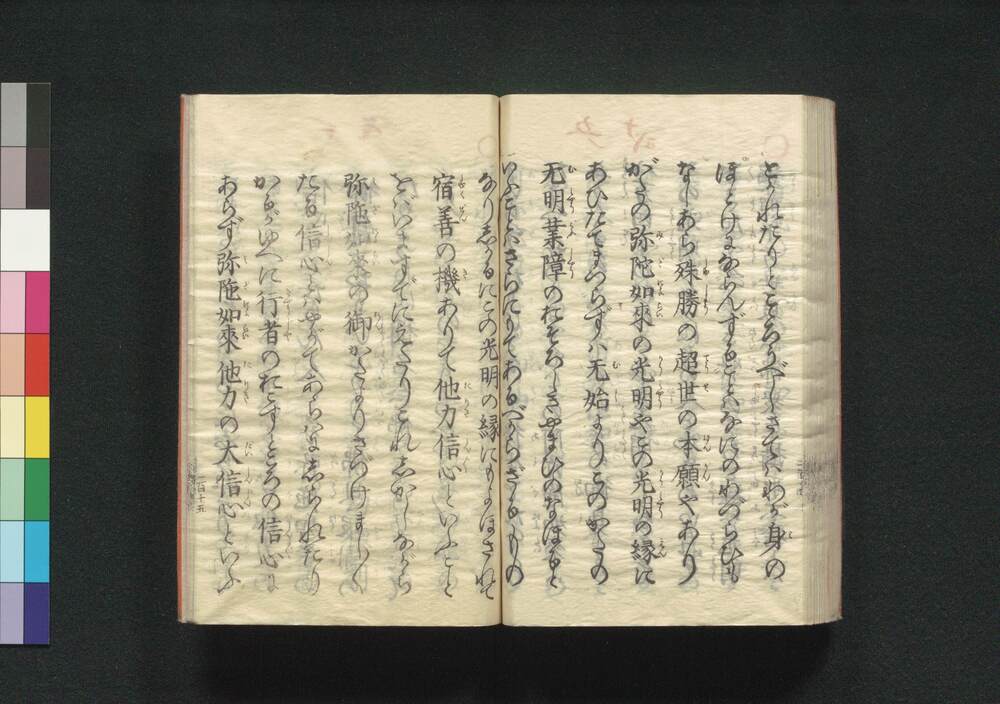 とられたりとこゝろうべしさてはわが身の
ほとけにならんずることはなにのわづらひも
なしあら殊勝の超世の本願やあり
がたの弥陀如來の光明やこの光明の縁に
あひたてまつらずハ无始よりこのかたの
无明業障のおそろしきやまひのなほると
いふことハさらにもてあるべからざるもの
なりしかるにこの光明の縁にもよほされて
宿善の機ありて他力信心といふこと
をバいますでにえたりこれしかしながら
弥陀如來の御かたよりさづけまし〳〵
たる信心とハやがてあらはにしられたり
かるがゆへに行者のおこすところの信心に
あらず弥陀如來他力の大信心といふ
一百十五